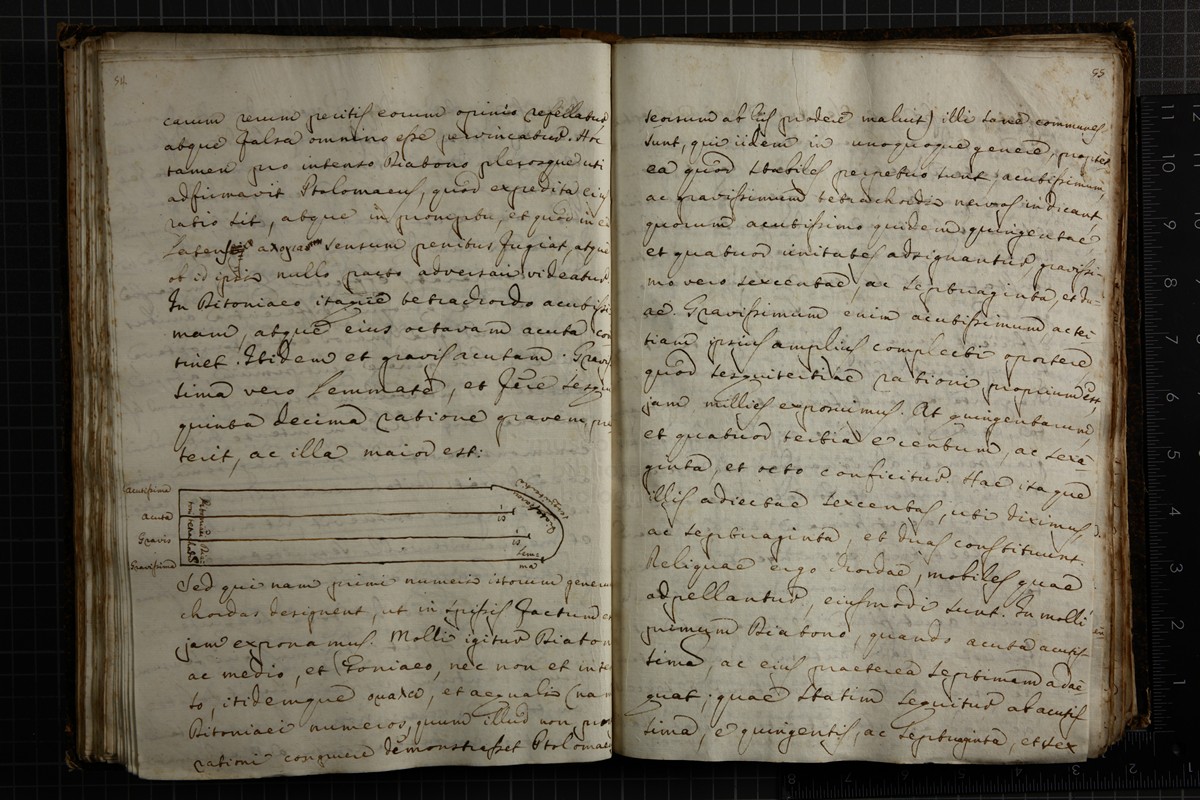 54
earum rerum peritis eorum opinio refellatur
atque falsa omnino esse pervincatur. Hoc
tamen pro intenso Diatono plerosque uti
adfirmavit Ptolomaeus, quod expedita eius
ratio sit, atque in promptu, et quod in ea
Latens sensum penitus fugiat, atque
ob id ipsis nullo pacto adversari videatur
In Ditoniaeo itaque tetrachordo acutissi
mam, atque eius octavam acuta con
tinet. Itidem et gravis acutam. Gravis
sima vero Lemmate, et fere sesqui
quinta decima ratione gravem prae
terit, ac illa maior est:
Acutissima
Acuta
Gravis
Gravissima
Lem
ma
Sed qui nam primi numeris istorum generum
chordas designent, ut in spissis factum est
jam exponamus. Molli igitur Diatono
ac medio, et Toniaeo, nec non et inten
so, itidemque et aequali (nam
Ditoniaei numeros, quum illud non pro
rationi congruere demonstrasset Ptolomaeus
55
seorsum ab ijs prodere maluit) illi sane communes
sunt, qui iidem in unoquoque genere, propter
ea quod stabiles perpetuo sunt, acutissimum,
ac gravissimum tetrachordis nervos indicant,
quorum acutissimo quidem quingentae
et quatuor unitates adsignantur, gravissi
mo vero sexcentae, ac septuaginta, et du
ae. Gravissimum enim acutissimum, ac ter
tiam ipsius amplius complecti oportere
quod sesquitertiae rationi proprium est,
jam millies exposuimus. At quingentarum
et quatuor tertia è centum, ac sexa
ginta, et octo conficitur. Hae itaque
illis adiectae sexcentas, uti diximus,
ac septuaginta et duas constituunt.
Reliquae ergo chordae, mobiles quae
adpellantur, eiusmodi sunt. In molli
primum Diatono, quando acuta acutis
sima, ac eius praeterea septimam adae
quat; quae statim sequitur ab acutis
sima, è quingentis, ac septuaginta, et sex